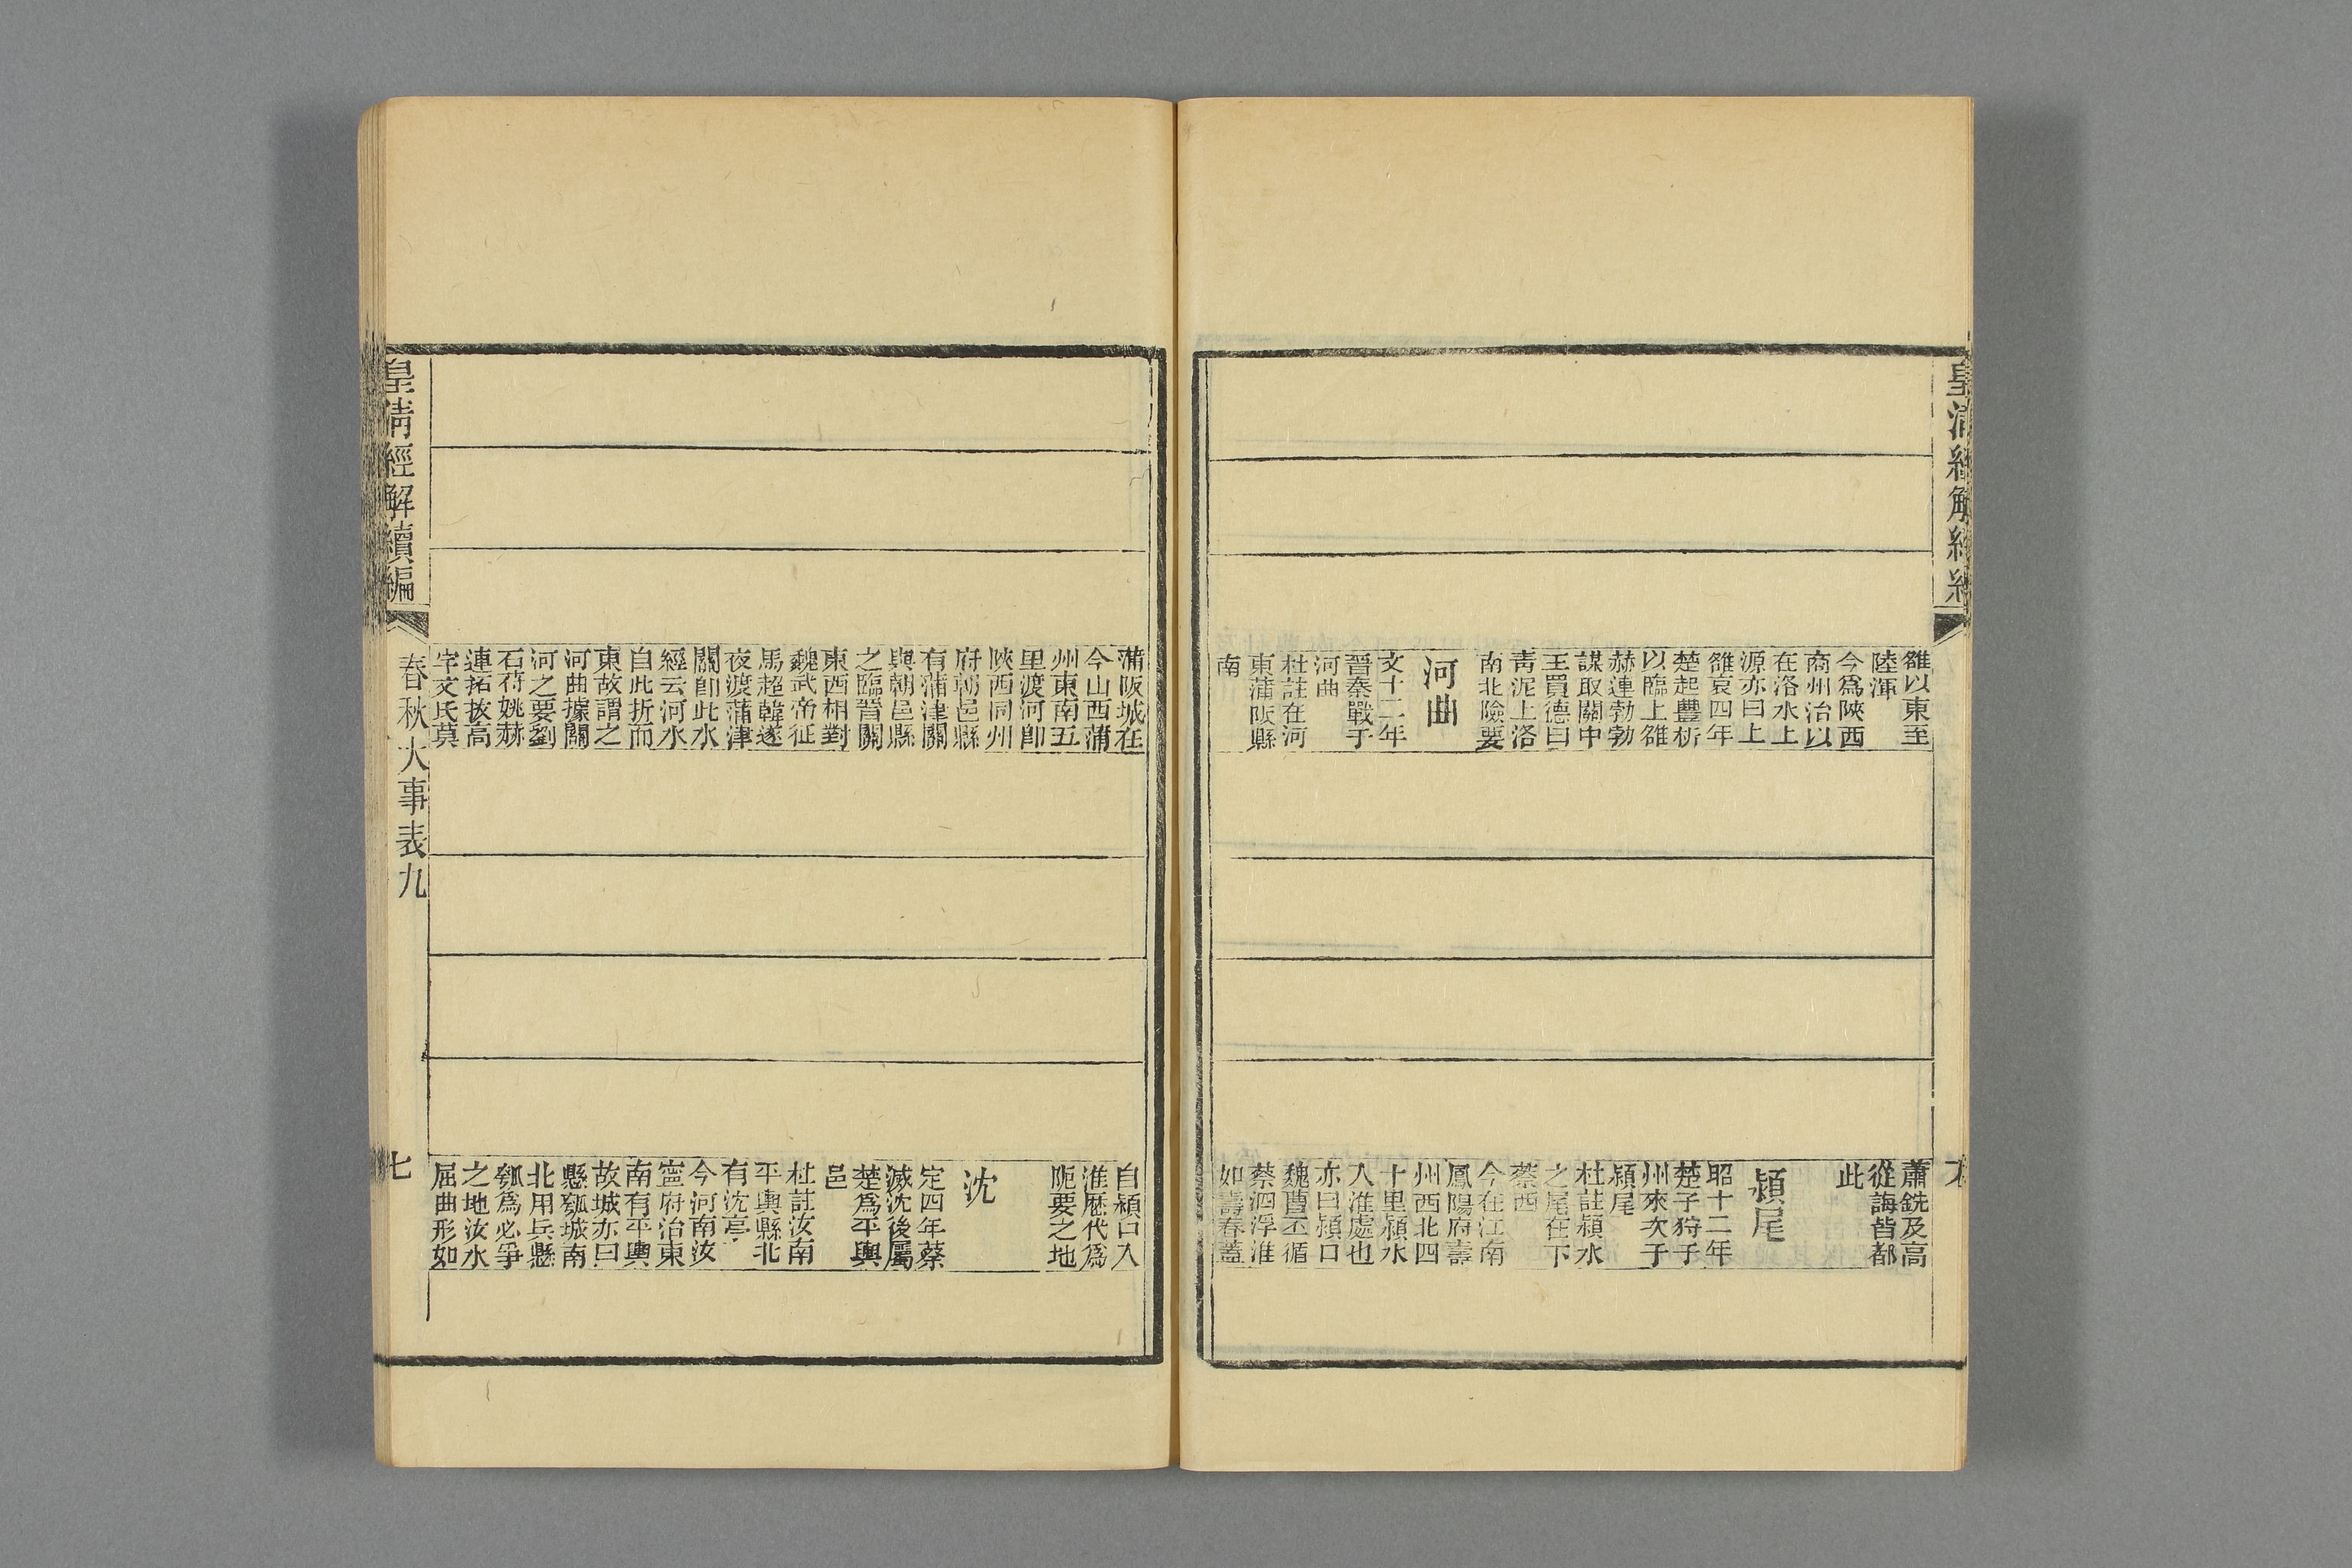 皇清經解續編
雒以東至
陸渾
今爲陝西
商州治以
在洛水上
源亦曰上
雒哀四年
楚起豐析
以臨上雒
赫連勃勃
謀取關中
王買德曰
靑泥上洛
南北險要
河曲
文十二年
晉秦戰于
河曲
杜註在河
東蒲阪縣
南
蕭銑及高
從誨皆都
此
潁尾
昭十二年
楚子狩于
州來次于
潁尾
杜註潁水
之尾在下
蔡西
今在江南
鳳陽府壽
州西北四
十里潁水
入淮處也
亦曰潁口
魏曹丕循
蔡泗浮淮
如壽春蓋
蒲阪城在
今山西蒲
州東南五
里渡河卽
陝西同州
府朝邑縣
有蒲津關
與朝邑縣
之臨晉關
東西相對
魏武帝征
馬超韓遂
夜渡蒲津
關卽此水
經云河水
自此折而
東故謂之
河曲據關
河之要劉
石苻姚赫
連拓拔高
宇文氏莫
自潁口入
淮歷代爲
阨要之地
沈
定四年蔡
滅沈後屬
楚爲平輿
邑
杜註汝南
平輿縣北
有沈亭
今河南汝
寧府治東
南有平輿
故城亦曰
懸瓠城南
北用兵懸
瓠爲必爭
之地汝水
屈曲形如
皇淸經解續編
春秋大事表九
七